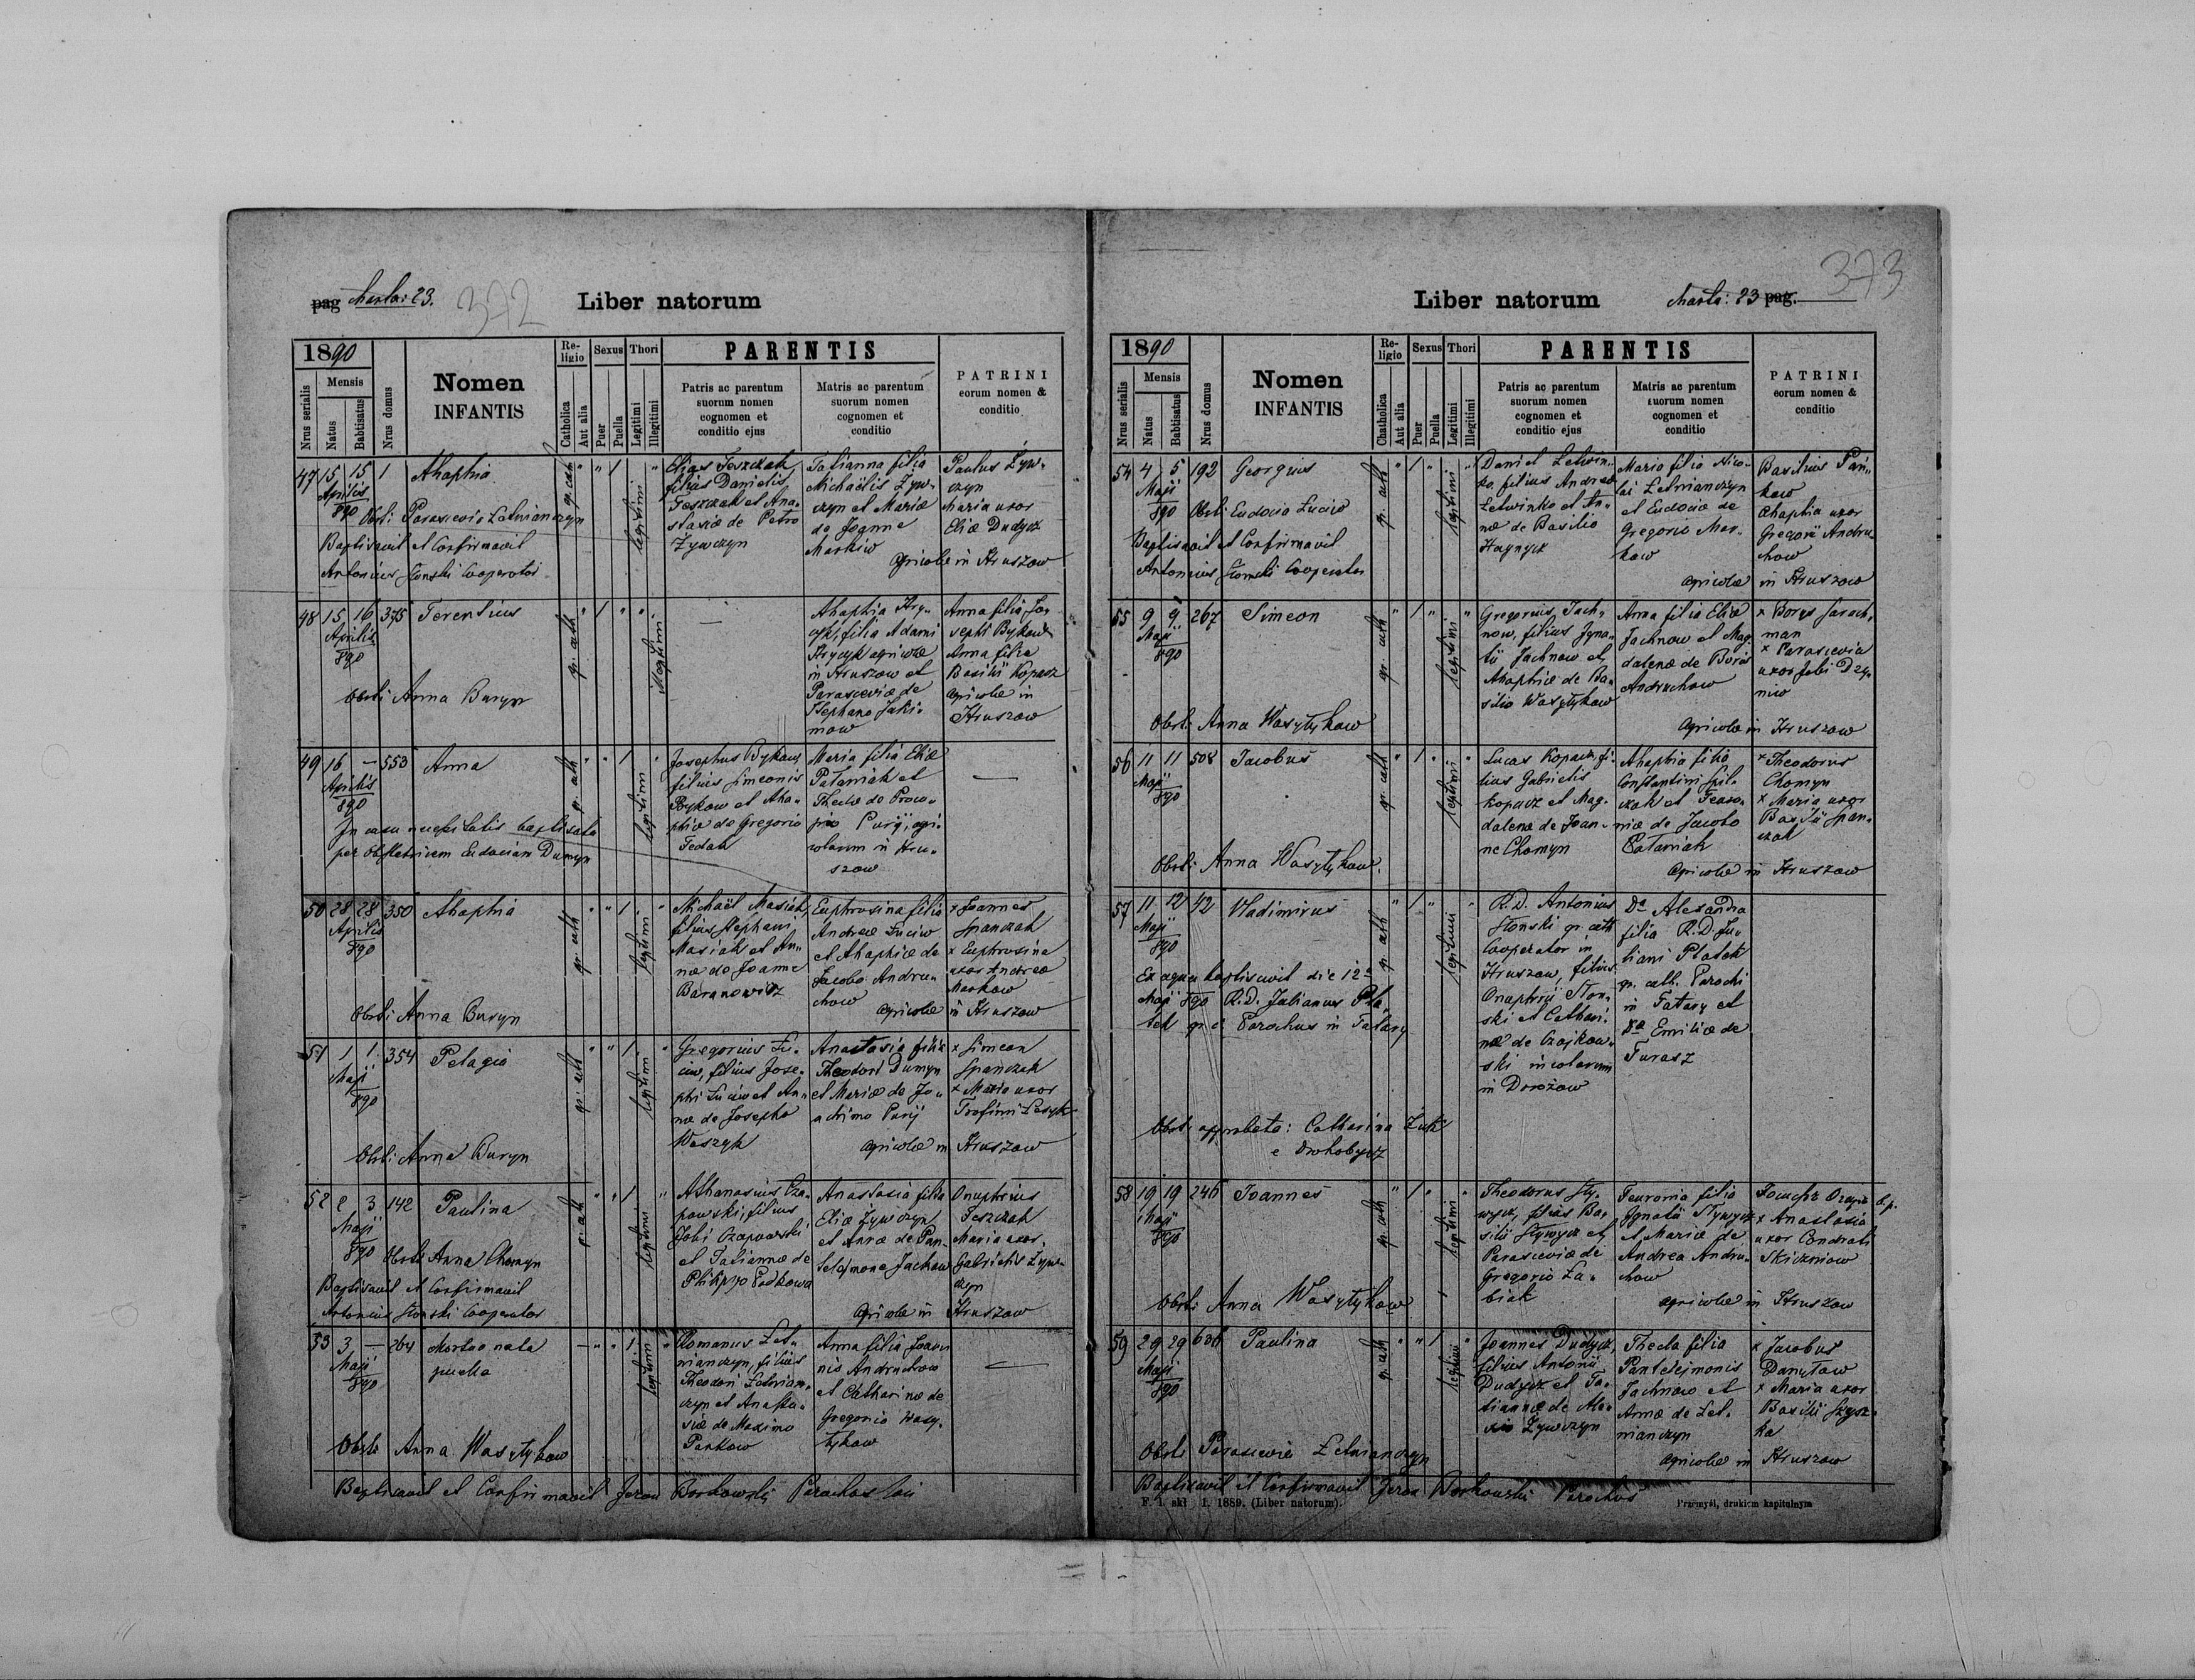 pag Charta: 23.
372
Liber natorum
1890
Nrus serialis
Mensis
Natus
Babtisatus
Nrus domus
Nomen
INFANTIS
Re-
ligio
Catholica
Aut alia
Sexus
Puer
Puella
Thori
Legitimi
Illegitimi
PARENTIS
Patris ac parentum
suorum nomen
cognomen et
conditio ejus
Matris ac parentum
suorum nomen
cognomen et
conditio
PATRINI
eorum nomen &
conditio
47 15 15 1 Ahaphia
Aprilis
890
Obsti Parascevia Letnianczyn
Baptisavit et Confirmavit
Antonius Stonski Cooperator
gr. cath
" " 1 "
legitimi
Elias Feszczak,
filius Danielis
Feszczak et Ana-
stasiæ de Petro
Zywczyn
Tatianna filia
Michaëlis Zyw-
czyn et Mariæ
de Joanne
Markiw
Paulus Zyw-
czyn
Maria uxor
Eliæ Dudycz
agricolæ in Hruszow
48 15 16 375 Terentius
Aprilis
890
Obsti Anna Buryn
gr. cath
" 1 " "
illegitimi
—
Ahaphia Hry-
cyk, filia Adami
Hrycyk agricolæ
in Hruszow et
Parasceviæ de
Stephano Jaki-
mow
Anna filia Jo-
sephi Bykow
Anna filia
Basilii Kopacz
agricolæ in
Hruszow
49 16 — 553 Anna
Aprilis
890
In casu necessitatis baptisata
per obstetricem Eudociam Dumyn
gr. cath
" " 1 "
legitimi
Josephus Bykow,
filius Simeonis
Bykow et Aha-
phiæ de Gregorio
Fedak
Maria filia Eliæ
Pataniak et
Theclæ de Proco-
pio Purij, agri-
colarum in Hru-
szow
—
50 28 28 350 Ahaphia
Aprilis
890
Obsti Anna Buryn
gr. cath
" " 1 "
legitimi
Michaël Masiak,
filius Stephani
Masiak et An-
næ de Joanne
Baranowicz
Euphrosina filia
Andreæ Luciw
et Ahaphiæ de
Jacobo Andru-
chow
x Joannes
Spanczak
x Euphrosina
uxor Andreæ
Markow
agricolæ in Hruszow
51 1 1 354 Pelagia
Maji
890
Obsti Anna Buryn
gr. cath
" " 1 "
legitimi
Gregorius Lu-
ciw, filius Jose-
phi Luciw et An-
næ de Josepho
Waszyk
Anastasia filia
Theodori Dumyn
et Mariæ de Jo-
achimo Purij
x Simeon
Spanczak
x Maria uxor
Trofimi Lesyk
agricolæ in Hruszow
52 2 3 142 Paulina
Maji
890 Obsti Anna Chomyn
Baptisavit et Confirmavit
Antonius Stonski Cooperator
gr. cath
" " 1 "
legitimi
Athanasius Cza-
powski, filius
Jobi Czapowski
et Tatiannæ de
Philippo Podkowa
Anastasia filia
Eliæ Zywczyn
et Annæ de Pan-
telejmone Jachnow
Onuphrius
Feszczak
Maria uxor
Gabrielis Zyw-
czyn
agricolæ in Hruszow
53 3 — 264 Mortuo nata
Maji puella
890
Obsti Anna Wasylykow
— " " 1 "
legitimi
Romanus Let-
nianczyn, filius
Theodori Letnian-
czyn et Anasta-
siæ de Maximo
Pankow
Anna filia Joan-
nis Andruchow
et Catharinæ de
Gregorio Wasy-
lykow
—
Baptisavit et Confirmavit Borkowski Parochus loci
Liber natorum
Charta: 23 pag.
373
1890
Nrus serialis
Mensis
Natus
Babtisatus
Nrus domus
Nomen
INFANTIS
Re-
ligio
Chatholica
Aut alia
Sexus
Puer
Puella
Thori
Legitimi
Illegitimi
PARENTIS
Patris ac parentum
suorum nomen
cognomen et
conditio ejus
Matris ac parentum
suorum nomen
cognomen et
conditio
PATRINI
eorum nomen &
conditio
54 4 5 192 Georgius
Maji
890 Obsti Eudocia Luciw
Baptisavit et Confirmavit
Antonius Stonski Cooperator
gr. cath
" 1 " "
legitimi
Daniel Letwin-
ko, filius Andreæ
Letwinko et An-
næ de Basilio
Hrynycz
Maria filia Nico-
lai Letnianczyn
et Eudociæ de
Gregorio Mar-
kow
Basilius Pań-
kow
Ahaphia uxor
Gregorii Andru-
chow
agricolæ in Hruszow
55 9 9 267 Simeon
Maji
890
Obsti Anna Wasylykow
gr. cath
" 1 " "
legitimi
Gregorius Jach-
now, filius Igna-
tii Jachnow et
Ahaphiæ de Ba-
silio Wasylykow
Anna filia Eliæ
Jachnow et Mag-
dalenæ de Boris
Andruchow
x Borys Sarach-
man
x Parascevia
uxor Jobi Dzy-
niw
agricolæ in Hruszow
56 11 11 508 Jacobus
Maji
890
Obsti Anna Wasylykow.
gr. cath
" 1 " "
legitimi
Lucas Kopacz, fi-
lius Gabrielis
Kopacz et Mag-
dalenæ de Joan-
ne Chomyn
Ahaphia filia
Constantini Spil-
czak et Feuro-
niæ de Jacobo
Pataniak
x Theodorus
Chomyn
x Maria uxor
Basilii Span-
czak
agricolæ in Hruszow
57 11 12 42 Vladimirus
Maji
890
Ex aqua baptisavit die 12a
Maji 890 R.D. Julianus Pla-
tek gr. c. Parochus in Tatary
Obst. approbata: Catharina Żuk
e Drohobycz
gr. cath
" 1 " "
legitimi
R.D. Antonius
Stonski gr. cath
Cooperator in
Hruszow, filius
Onuphrii Ston-
ski et Cathari-
næ de Czajkow-
ski incolarum
in Dorożow
Da Alexandra
filia R.D. Ju-
liani Platek
gr. cath. Parochi
in Tatary et
Da Emiliæ de
Turasz
58 19 19 246 Joannes
Maji
890
Obsti Anna Wasylykow
gr. cath
" 1 " "
legitimi
Theodorus Sty-
wycz, filius Ba-
silii Stywycz et
Parasceviæ de
Gregorio La-
biak
Feuronia filia
Ignatii Stywycz
et Mariæ de
Andrea Andru-
chow
x Anastasia
uxor Condrati
Skizniow
agricolæ in Hruszow
59 29 29 686 Paulina
Maji
890
Obsti Parascevia Letnianczyn
gr. cath
" " 1 "
legitimi
Joannes Dudycz,
filius Antonii
Dudycz et Ta-
tiannæ de Ale-
xio Zywczyn
Thecla filia
Pantelejmonis
Jachnow et
Annæ de Let-
nianczyn
x Jacobus
Danylow
x Maria uxor
Basilii Szysz-
ka
agricolæ in Hruszow
Baptisavit et Confirmavit Borkowski Parochus
F. I. akl 1. 1889. (Liber natorum).
Przemyśl, drukiem kapitulnym